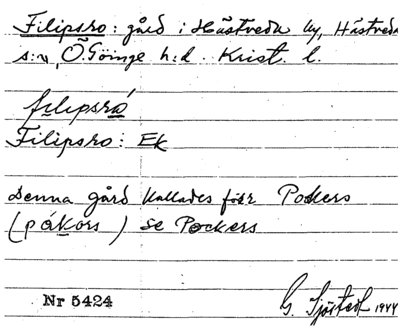 Filipsro: gård i Hästveda by, Hästveda
s:n, Ö. Göinge h:d. Krist. l.
filipsró
Filipsro: Ek
Denna gård kallades förr Pockers
(påkors) se Pockers
Nr 5424
G. Sjöstedt 1944